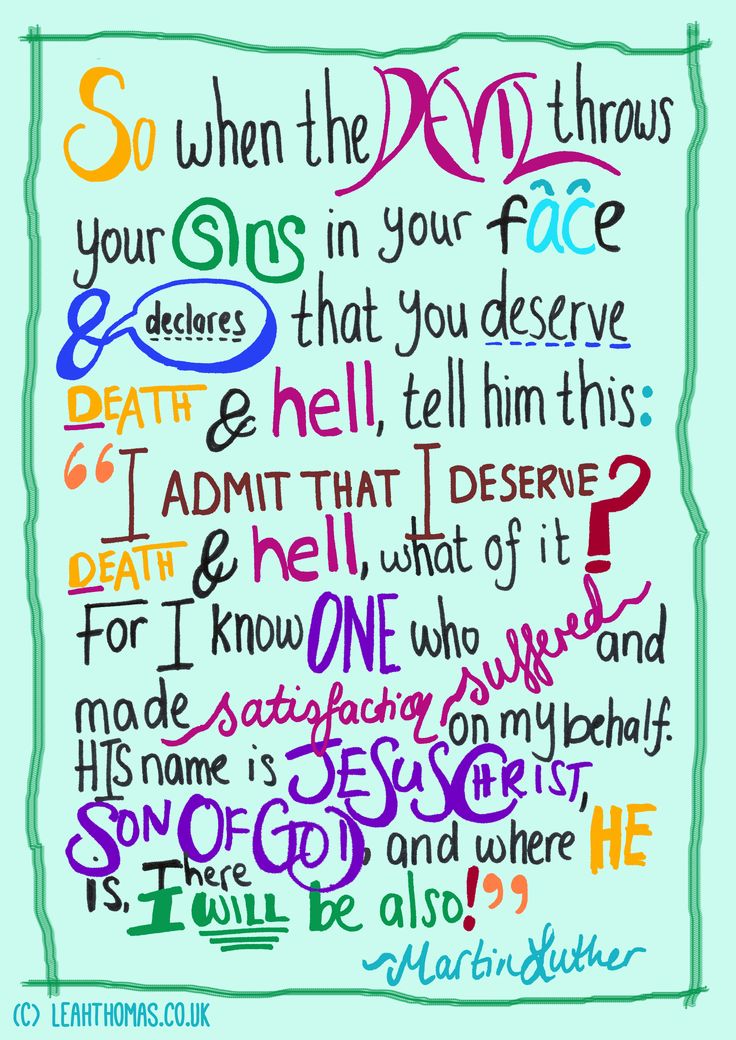 So when the DEVIL throws
your sins in your face
& declares that you deserve
DEATH & hell, tell him this:
“I ADMIT THAT I DESERVE
DEATH & hell, what of it?
For I know ONE who suffered and
made satisfaction on my behalf.
HIS name is JESUS CHRIST,
SON OF GOD, and where HE
is, There
I WILL be also!”
~Martin Luther
(C) LEAHTHOMAS.CO.UK